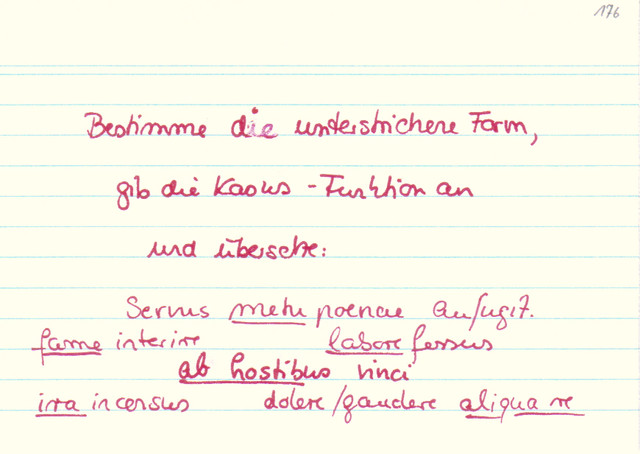 176
Bestimme die unterstrichene Form,
gib die Kasus-Funktion an
und übersetze:
Servus metu poenae aufugit.
fame interire labore fessus
ab hostibus vinci
ira incensus dolere/gaudere aliqua re